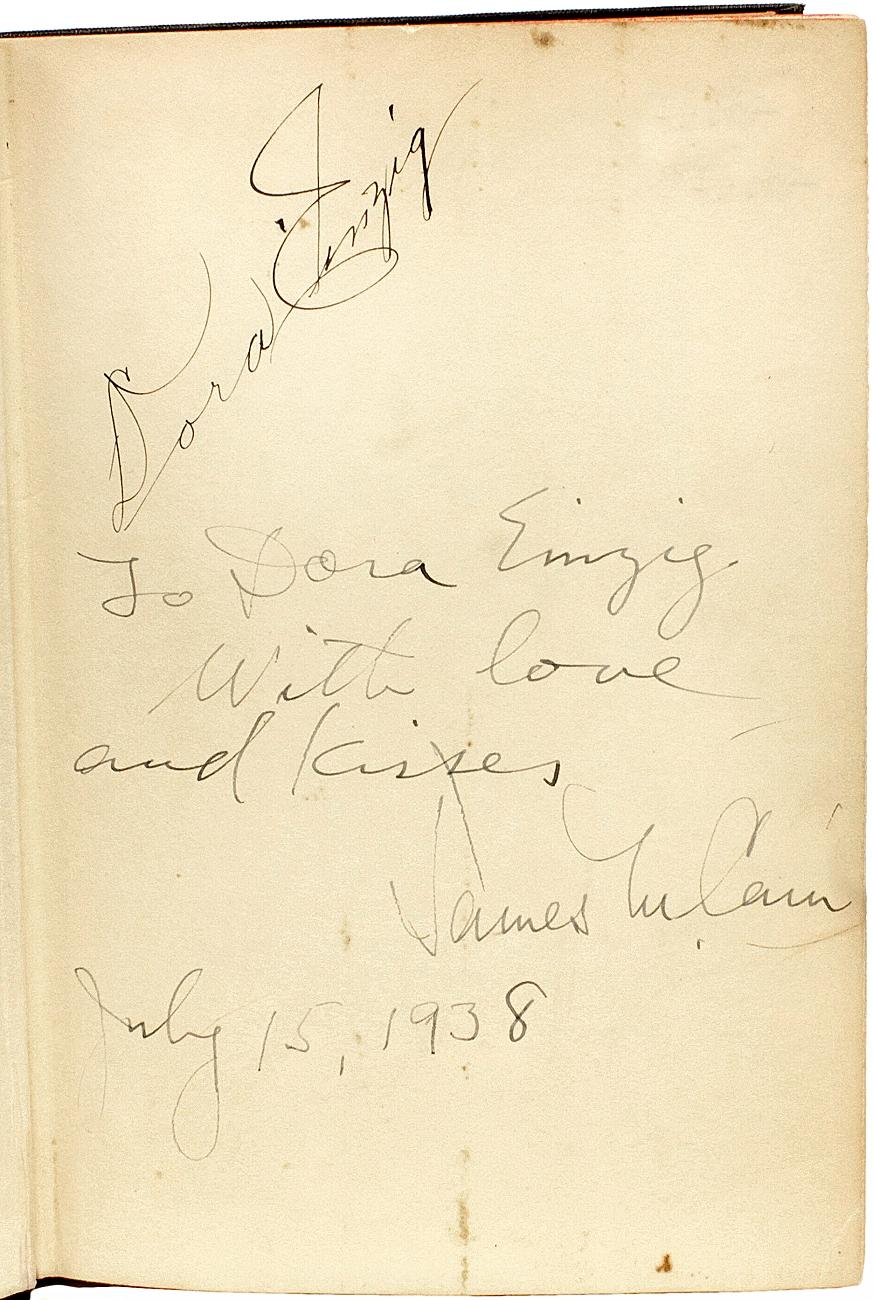 Dora Einzig
To Dora Einzig
With love
and kisses
James M. Cain
July 15, 1938